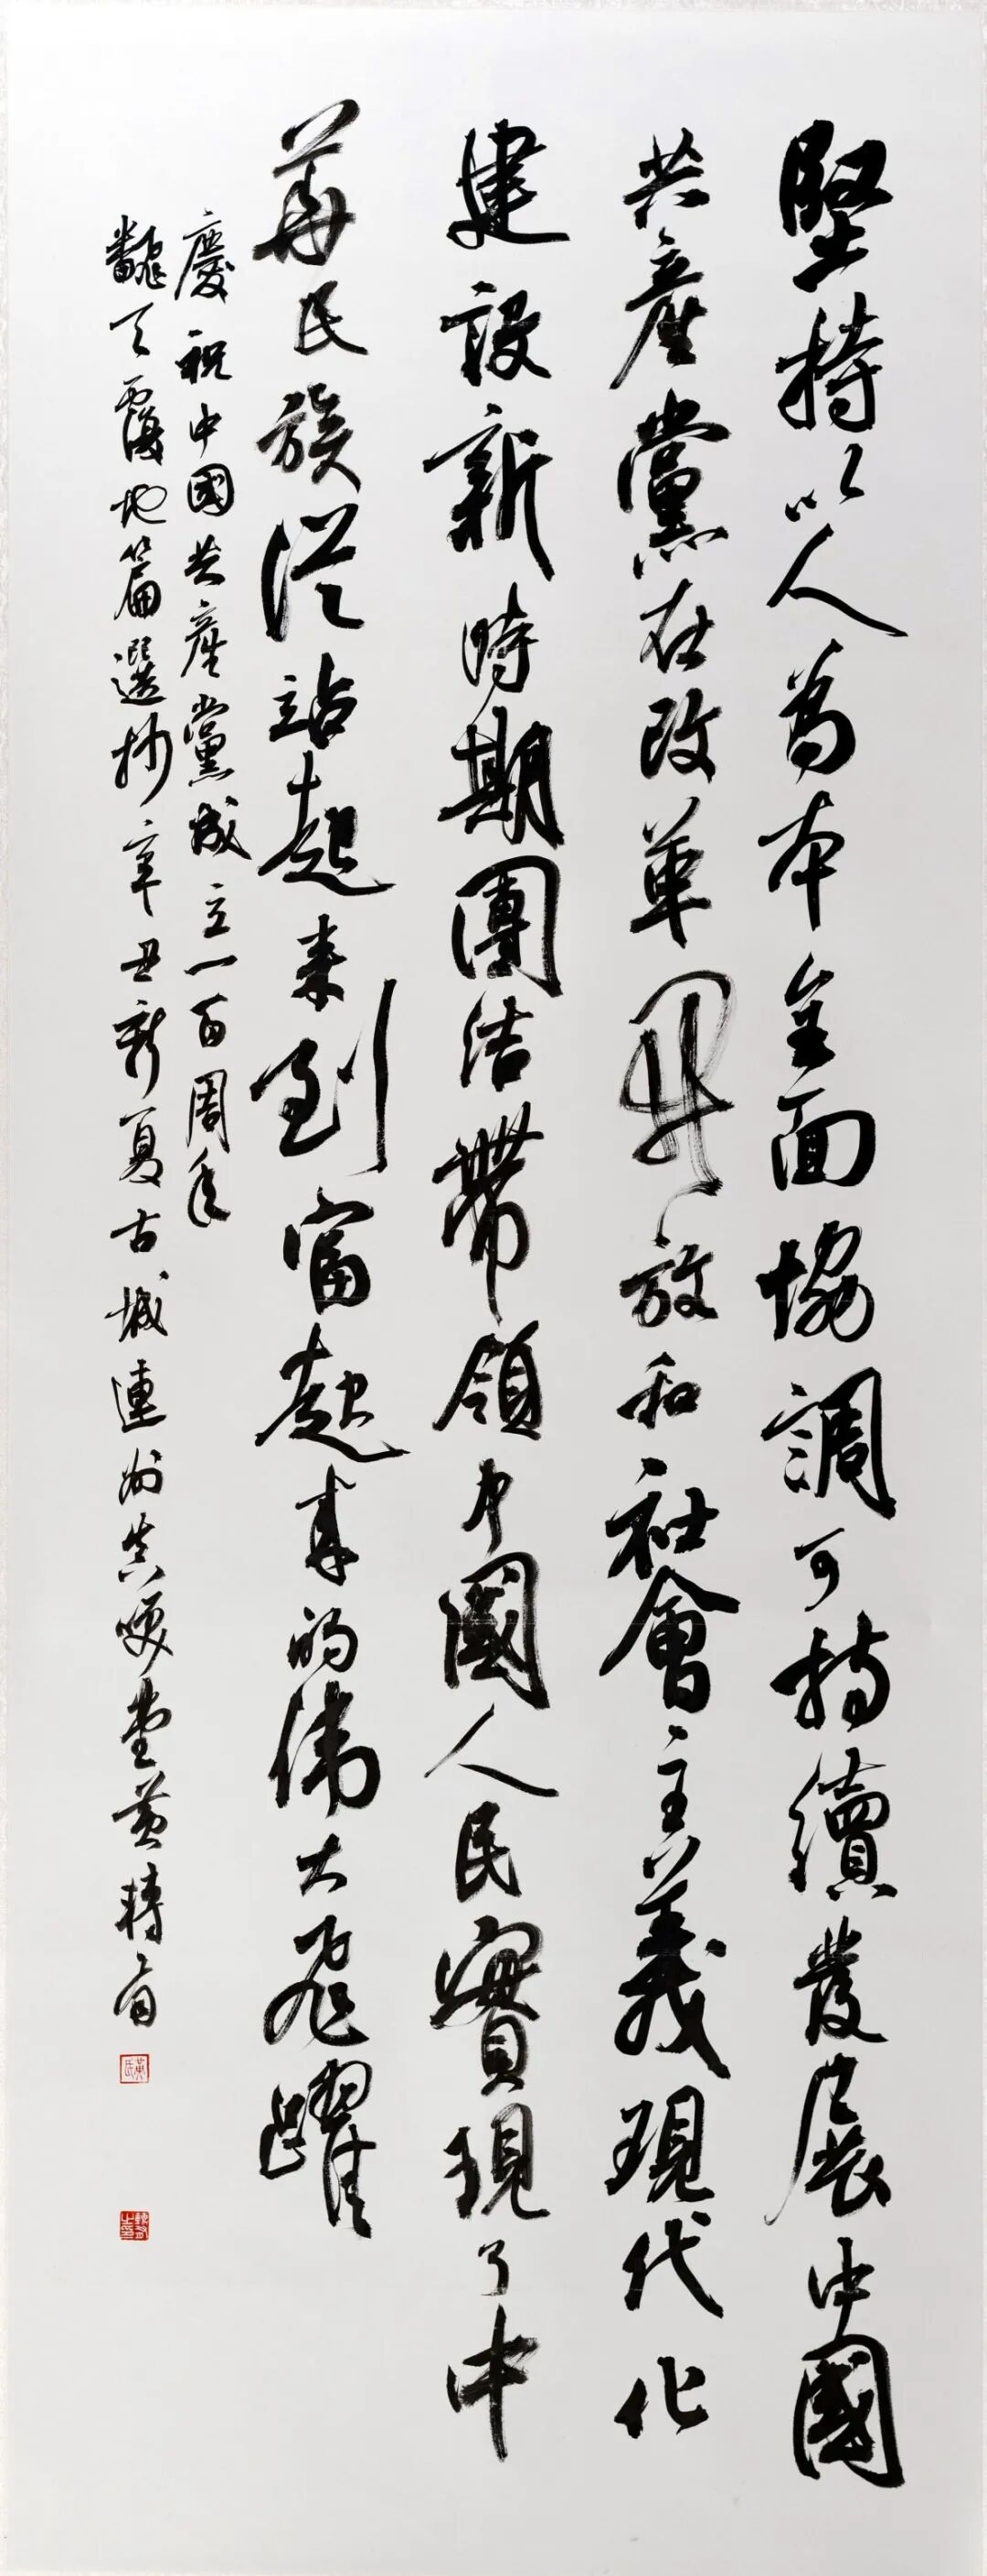 堅持以人為本全面協調可持續發展中國
共產黨在改革開放和社會主義現代化
建設新時期團結帶領中國人民實現了中
華民族從站起來到富起來的偉大飛躍
慶祝中國共產黨成立一百周年
翻天覆地篇選抄辛丑新夏古城連州共嘤堂黃轉
黃氏